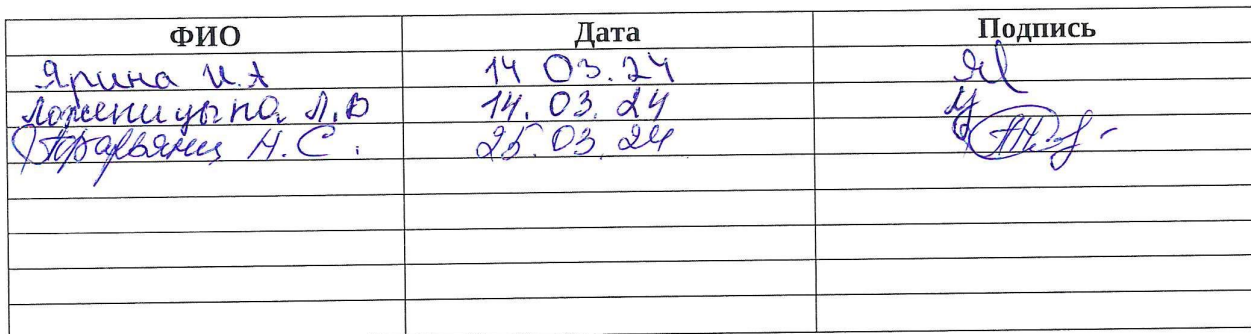 ФИО Дата Подпись
Ярина И.А 14 03.24
Ложеницына Л.В 14.03.24
Н.С. 25.03.24